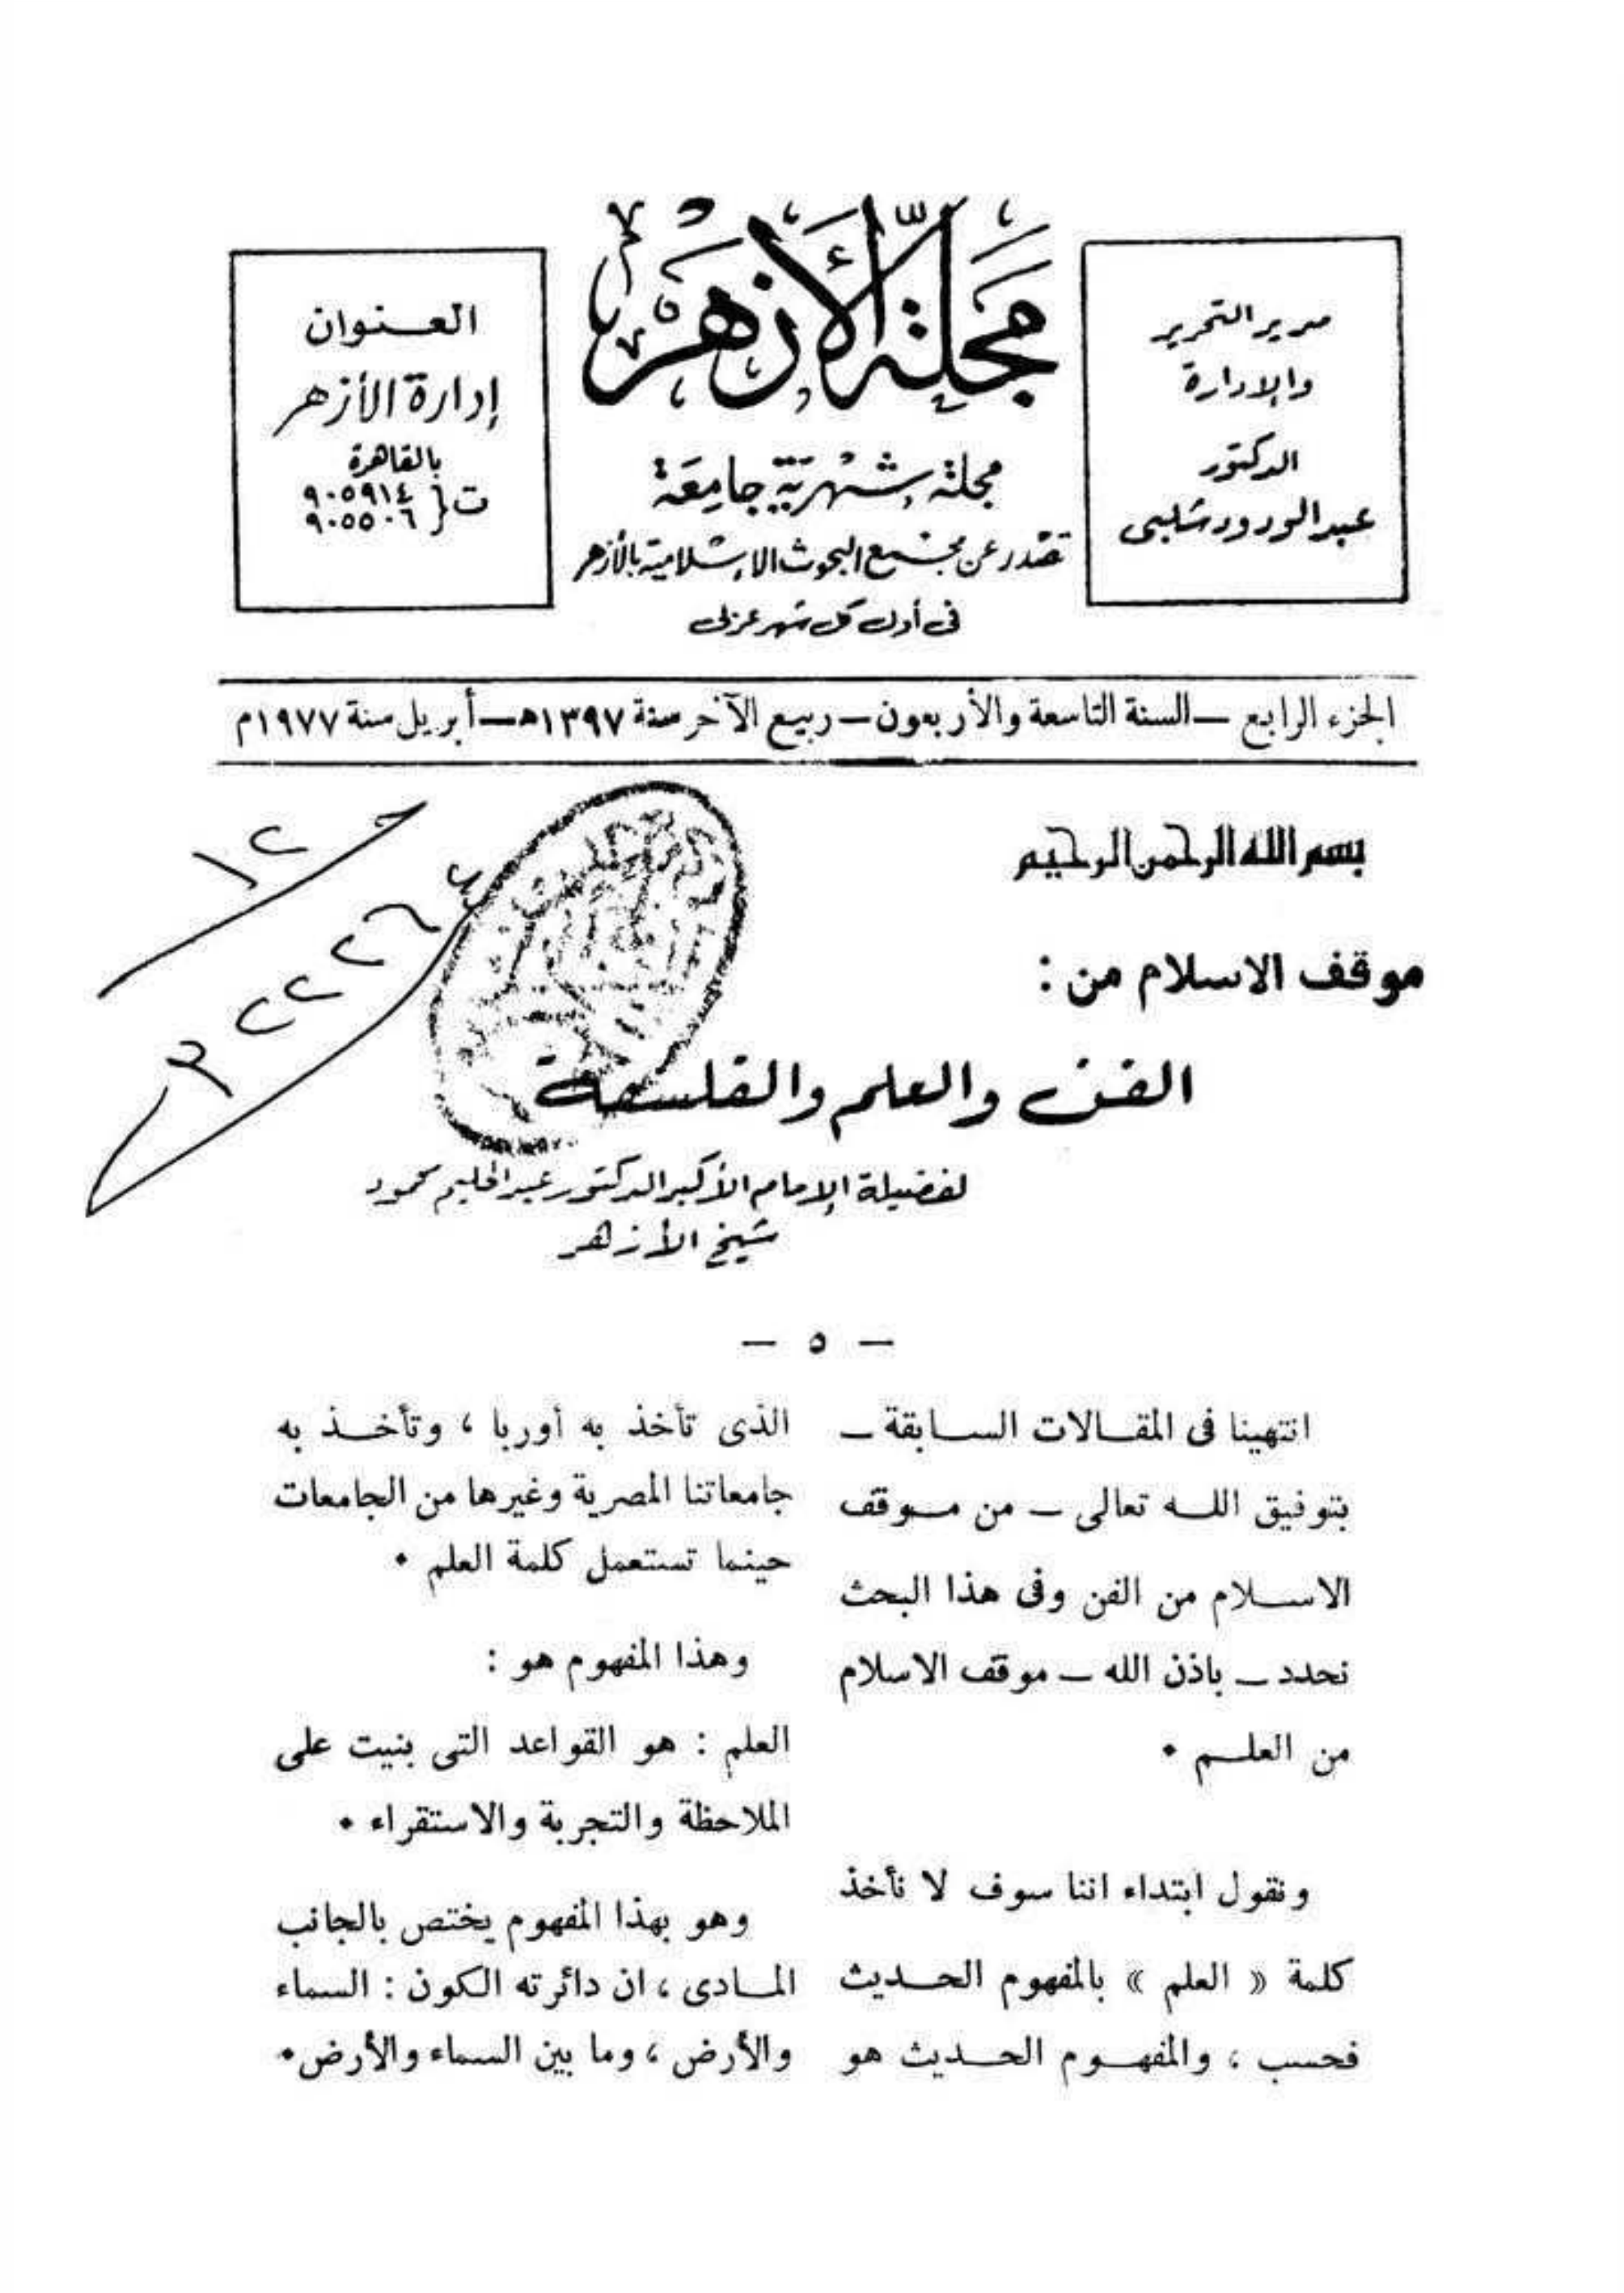 مدير التحرير
والإدارة
الدكتور
عبد الودود شلبى
مَجَلَّة الأزهَر
مجلة شهرية جامعة
تصدر عن مجمع البحوث الإسلامية بالأزهر
فى أول كل شهر عربى
العنوان
إدارة الأزهر
بالقاهرة
ت { ٩٠٥٩١٤
٩٠٥٥٠٦
الجزء الرابع – السنة التاسعة والأربعون – ربيع الآخر سنة ١٣٩٧هـ – أبريل سنة ١٩٧٧م
بسم الله الرحمن الرحيم
موقف الاسلام من :
الفن والعلم والفلسفة
لفضيلة الإمام الأكبر الدكتور عبد الحليم محمود
شيخ الأزهر
– ٥ –
انتهينا فى المقالات السابقة –
بتوفيق الله تعالى – من موقف
الاسلام من الفن وفى هذا البحث
نحدد – باذن الله – موقف الاسلام
من العلم •
ونقول ابتداء اننا سوف لا نأخذ
كلمة « العلم » بالمفهوم الحديث
فحسب ، والمفهوم الحديث هو
الذى تأخذ به أوربا ، وتأخذ به
جامعاتنا المصرية وغيرها من الجامعات
حينما تستعمل كلمة العلم •
وهذا المفهوم هو :
العلم : هو القواعد التى بنيت على
الملاحظة والتجربة والاستقراء •
وهو بهذا المفهوم يختص بالجانب
المادى ، ان دائرته الكون : السماء
والأرض ، وما بين السماء والأرض•